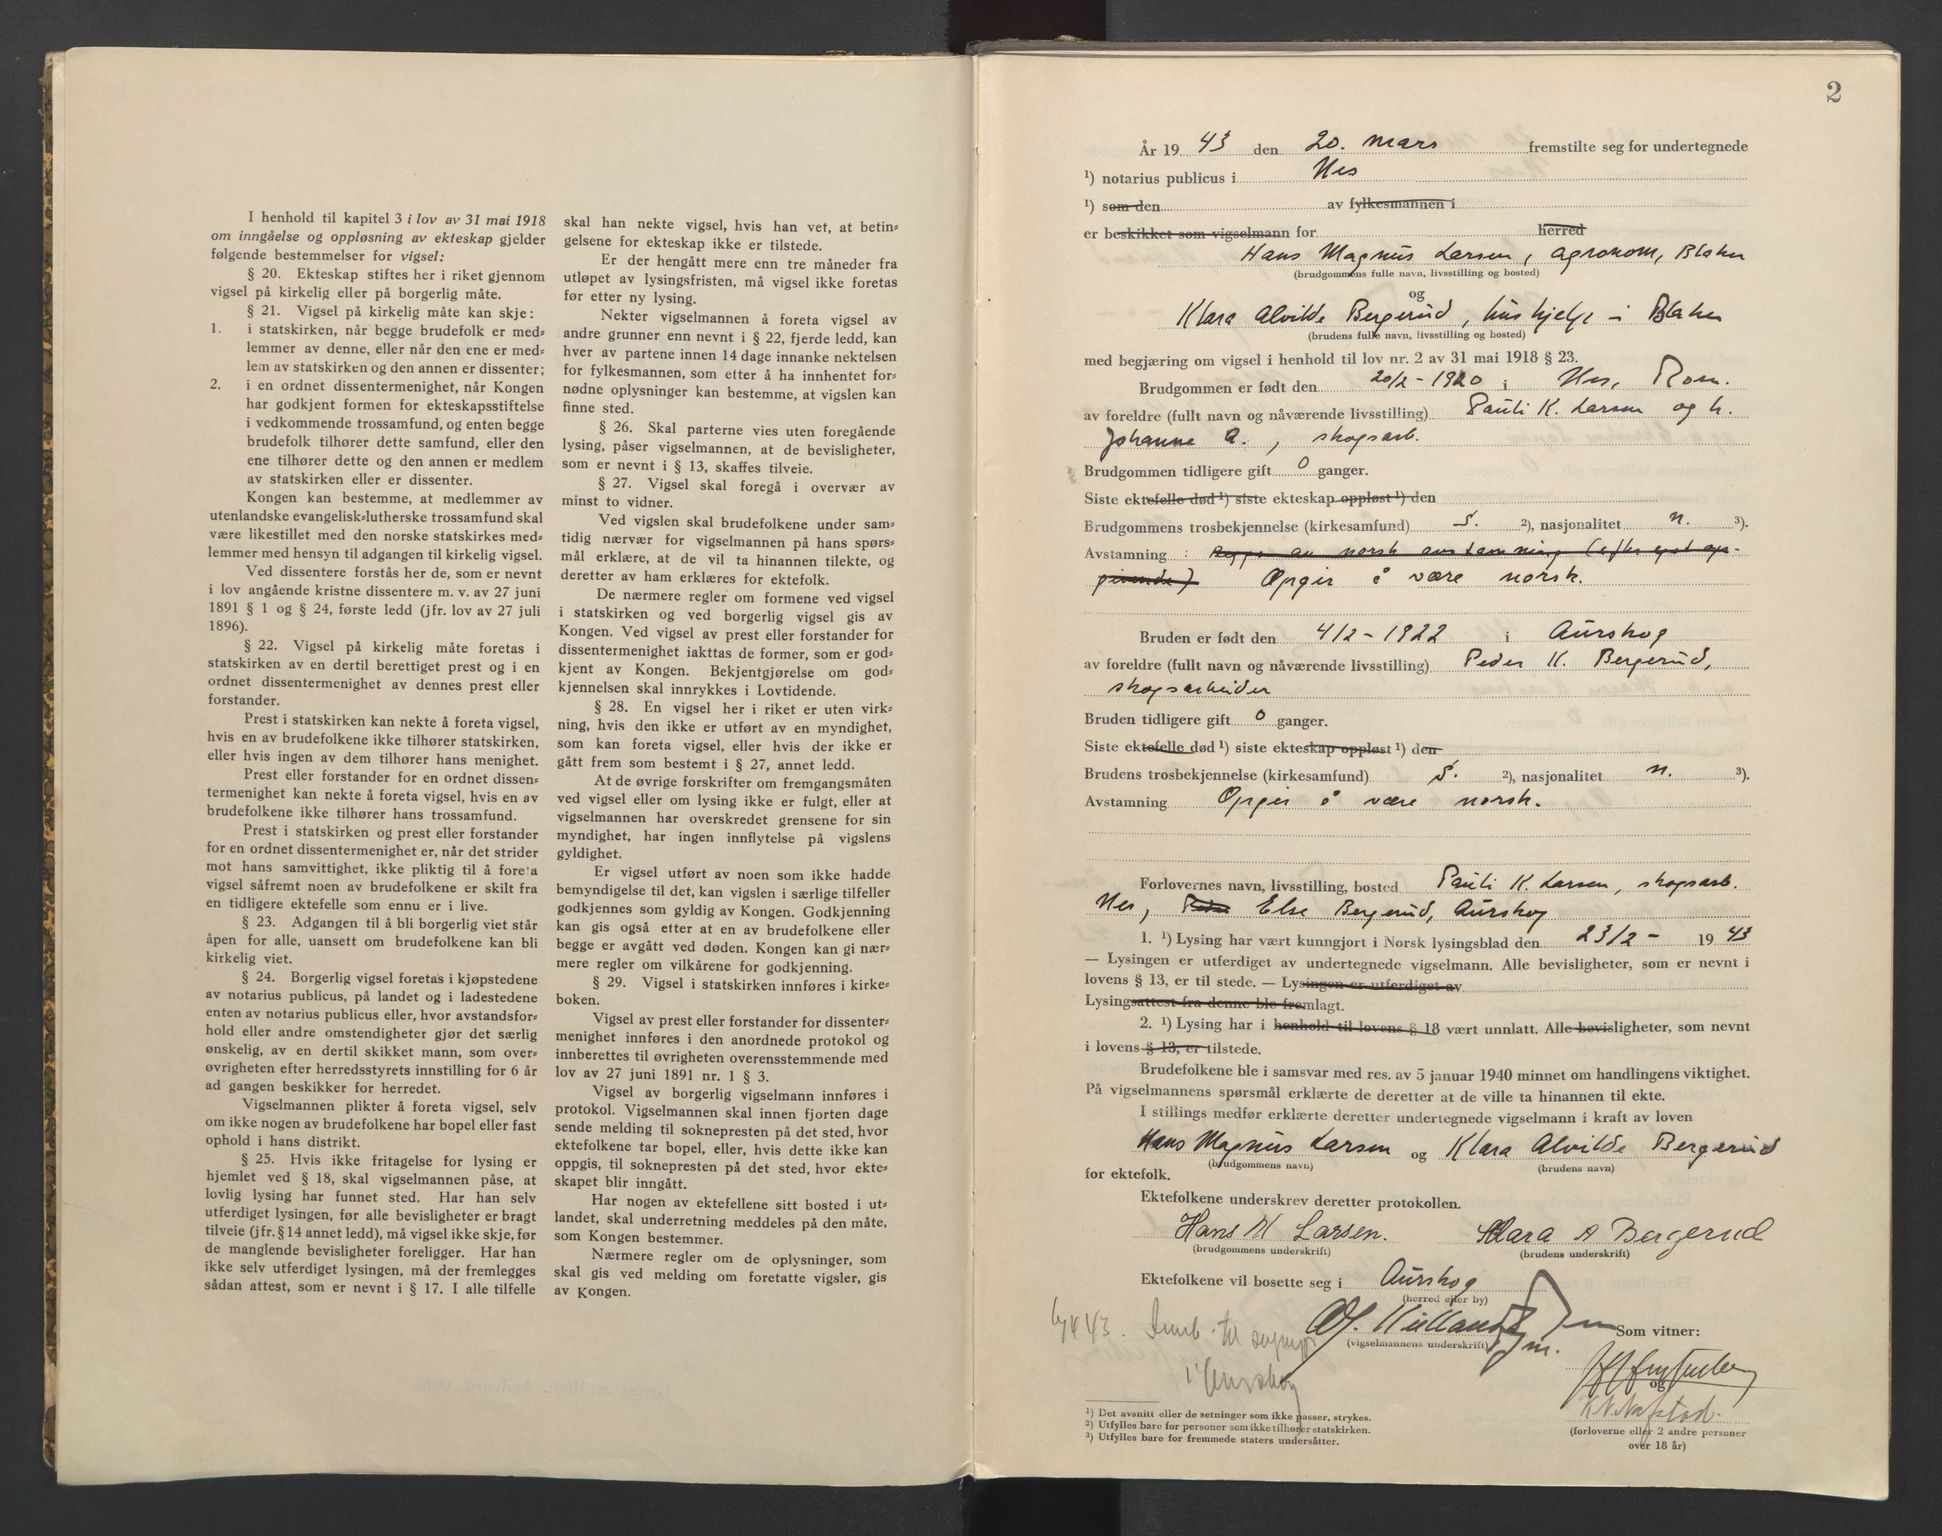 I henhold til kapitel 3 i lov av 31 mai 1918
om inngåelse og oppløsning av ekteskap gjelder
følgende bestemmelser for vigsel:
§ 20. Ekteskap stiftes her i riket gjennom
vigsel på kirkelig eller på borgerlig måte.
§ 21. Vigsel på kirkelig måte kan skje:
1. i statskirken, når begge brudefolk er med=
lemmer av denne, eller når den ene er med=
lem av statskirken og den annen er dissenter;
2. i en ordnet dissentermenighet, når Kongen
har godkjent formen for ekteskapsstiftelse
i vedkommende trossamfund, og enten begge
brudefolk tilhører dette samfund, eller den
ene tilhører dette og den annen er medlem
av statskirken eller er dissenter.
Kongen kan bestemme, at medlemmer av
utenlandske evangelisk=lutherske trossamfund skal
være likestillet med den norske statskirkes med=
lemmer med hensyn til adgangen til kirkelig vigsel.
Ved dissentere forstås her de, som er nevnt
i lov angående kristne dissentere m. v. av 27 juni
1891 § 1 og § 24, første ledd (jfr. lov av 27 juli
1896).
§ 22. Vigsel på kirkelig måte foretas i
statskirken av en dertil berettiget prest og i en
ordnet dissentermenighet av dennes prest eller
forstander.
Prest i statskirken kan nekte å foreta vigsel,
hvis en av brudefolkene ikke tilhører statskirken,
eller hvis ingen av dem tilhører hans menighet.
Prest eller forstander for en ordnet dissen=
termenighet kan nekte å foreta vigsel, hvis en av
brudefolkene ikke tilhører hans trossamfund.
Prest i statskirken og prest eller forstander
for en ordnet dissentermenighet er, når det strider
mot hans samvittighet, ikke pliktig til å fore'a
vigsel såfremt noen av brudefolkene er skilt fra
en tidligere ektefelle som ennu er i live.
§ 23. Adgangen til å bli borgerlig viet står
åpen for alle, uansett om brudefolkene kan bli
kirkelig viet.
§ 24. Borgerlig vigsel foretas i kjøpstedene
av notarius publicus, på landet og i ladestedene
enten av notarius publicus eller, hvor avstandsfor=
hold eller andre omstendigheter gjør det særlig
ønskelig, av en dertil skikket mann, som over=
øvrigheten efter herredsstyrets innstilling for 6 år
ad gangen beskikker for herredet.
Vigselmannen plikter å foreta vigsel, selv
om ikke nogen av brudefolkene har bopel eller fast
ophold i hans distrikt.
§ 25. Hvis ikke fritagelse for lysing er
hjemlet ved § 18, skal vigselmannen påse, at
lovlig lysing har funnet sted. Har han selv
utferdiget lysingen, før alle bevisligheter er bragt
tilveie (jfr. § 14 annet ledd), må vigsel ikke skje, før
de manglende bevisligheter foreligger. Har han
ikke selv utferdiget lysingen, må der fremlegges
sådan attest, som er nevnt i § 17. I alle tilfelle
skal han nekte vigsel, hvis han vet, at betin=
gelsene for ekteskap ikke er tilstede.
Er der hengått mere enn tre måneder fra
utløpet av lysingsfristen, må vigsel ikke foretas
før etter ny lysing.
Nekter vigselmannen å foreta vigsel av
andre grunner enn nevnt i § 22, fjerde ledd, kan
hver av partene innen 14 dage innanke nektelsen
for fylkesmannen, som etter å ha innhentet for=
nødne oplysninger kan bestemme, at vigslen kan
finne sted.
§ 26. Skal parterne vies uten foregående
lysing, påser vigselmannen, at de bevisligheter,
som er nevnt i § 13, skaffes tilveie.
§ 27. Vigsel skal foregå i overvær av
minst to vidner.
Ved vigslen skal brudefolkene under sam=
tidig nærvær for vigselmannen på hans spørs=
mål erklære, at de vil ta hinannen tilekte, og
deretter av ham erklæres for ektefolk.
De nærmere regler om formene ved vigsel
i statskirken og ved borgerlig vigsel gis av
Kongen. Ved vigsel av prest eller forstander for
dissentermenighet iakttas de former, som er god=
kjent av Kongen. Bekjentgjørelse om god=
kjennelsen skal innrykkes i Lovtidende.
§ 28. En vigsel her i riket er uten virk=
ning, hvis den ikke er utført av en myndighet,
som kan foreta vigsel, eller hvis der ikke er
gått frem som bestemt i § 27, annet ledd.
At de øvrige forskrifter om fremgangsmåten
ved vigsel eller om lysing ikke er fulgt, eller at
vigselmannen har overskredet grensene for sin
myndighet, har ingen innflytelse på vigslens
gyldighet.
Er vigsel utført av noen som ikke hadde
bemyndigelse til det, kan vigslen i særlige tilfeller
godkjennes som gyldig av Kongen. Godkjenning
kan gis også etter at en av brudefolkene eller
begge er avgått ved døden. Kongen kan gi nær=
mere regler om vilkårene for godkjenning.
§ 29. Vigsel i statskirken innføres i kirke=
boken.
Vigsel av prest eller forstander for dissenter=
menighet innføres i den anordnede protokol og
innberettes til øvrigheten overensstemmende med
lov av 27 juni 1891 nr. 1 § 3.
Vigsel av borgerlig vigselmann innføres i
protokol. Vigselmannen skal innen fjorten dage
sende melding til soknepresten på det sted, hvor
ektefolkene tar bopel, eller, hvis dette ikke kan
oppgis, til soknepresten på det sted, hvor ekte=
skapet blir inngått.
Har nogen av ektefellene sitt bosted i ut=
landet, skal underretning meddeles på den måte,
som Kongen bestemmer.
Nærmere regler om de oplysninger, som
skal gis ved melding om foretatte vigsler, gis
av Kongen.
2
År 19 43 den 20. mars fremstilte seg for undertegnede
1) notarius publicus i Nes
1) som den av fylkesmannen i
er beskikket som vigselmann for herred
Hans Magnus Larsen, agronom, Blaker
(brudgommens fulle navn, livsstilling og bosted)
og
Klara Alvilde Bergerud, hushjelp i Blaker
(brudens fulle navn, livsstilling og bosted)
med begjæring om vigsel i henhold til lov nr. 2 av 31 mai 1918 § 23.
Brudgommen er født den 20/2 - 1920 i Nes, Rom.
av foreldre (fullt navn og nåværende livsstilling) Pauli K. Larsen og h.
Johanne A., skogsarb.
Brudgommen tidligere gift 0 ganger.
Siste ektefelle død 1) siste ekteskap oppløst 1) den
Brudgommens trosbekjennelse (kirkesamfund) S. 2), nasjonalitet n. 3).
Avstamning : Begge av norsk avstamning (efter eget op-
givende) Opgir å være norsk.
Bruden er født den 4/2 - 1922 i Aurskog
av foreldre (fullt navn og nåværende livsstilling) Peder K. Bergerud,
skogsarbeider
Bruden tidligere gift 0 ganger.
Siste ektefelle død 1) siste ekteskap oppløst 1) den
Brudens trosbekjennelse (kirkesamfund) S. 2), nasjonalitet n. 3).
Avstamning Opgir å være norsk.
Forlovernes navn, livsstilling, bosted Pauli K. Larsen, skogsarb.
Nes, Peder Else Bergerud, Aurskog
1. 1) Lysing har vært kunngjort i Norsk lysingsblad den 23/2 - 19 43
— Lysingen er utferdiget av undertegnede vigselmann. Alle bevisligheter, som er nevnt i
lovens § 13, er til stede. — Lysingen er utferdiget av
Lysingsattest fra denne ble fremlagt.
2. 1) Lysing har i henhold til lovens § 18 vært unnlatt. Alle bevisligheter, som nevnt
i lovens § 13, er tilstede.
Brudefolkene ble i samsvar med res. av 5 januar 1940 minnet om handlingens viktighet.
På vigselmannens spørsmål erklærte de deretter at de ville ta hinannen til ekte.
I stillings medfør erklærte deretter undertegnede vigselmann i kraft av loven
Hans Magnus Larsen og Klara Alvilde Bergerud
(brudgommens navn) (brudens navn)
for ektefolk.
Ektefolkene underskrev deretter protokollen.
Hans M Larsen. Klara A Bergerud
(brudgommens underskrift) (brudens underskrift)
Ektefolkene vil bosette seg i Aurskog
(herred eller by)
(vigselmannens underskrift) Som vitner:
43. til sognepr
i Aurskog
og
(forloverne eller 2 andre personer
over 18 år)
1) Det avsnitt eller de setninger som ikke passer, strykes.
2) Utfylles bare for personer som ikke tilhører statskirken.
3) Utfylles bare for fremmede staters undersåtter.